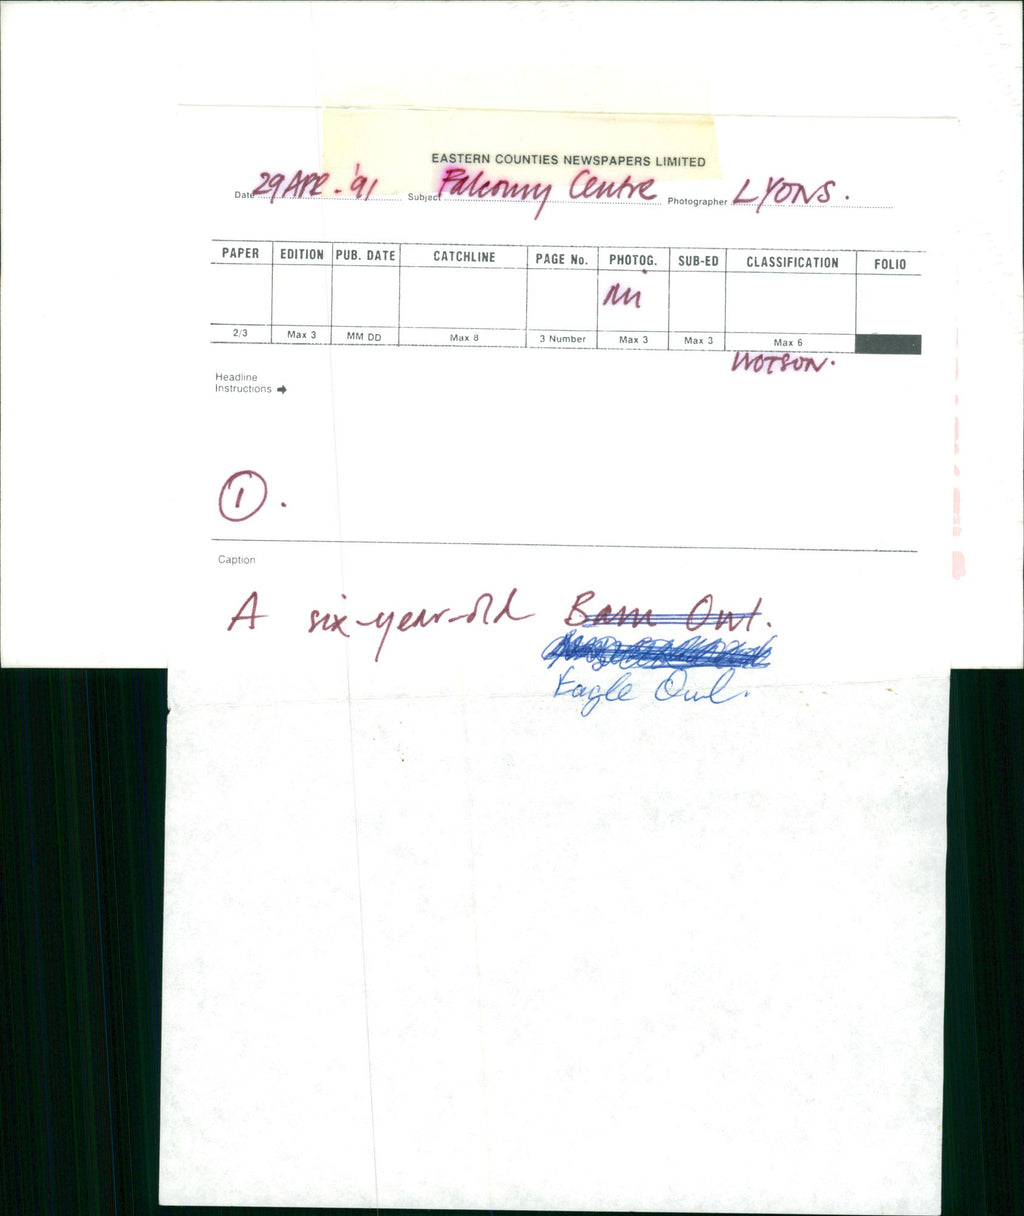 EASTERN COUNTIES NEWSPAPERS LIMITED
Date 29 APR. '91 Subject Falconry Centre Photographer LYONS.
PAPER EDITION PUB. DATE CATCHLINE PAGE No. PHOTOG. SUB-ED CLASSIFICATION FOLIO
2/3 Max 3 MM DD Max 8 3 Number Max 3 Max 3 Max 6
WOTSON.
Headline
Instructions
1.
Caption
A six-year-old Barn Owl.
Eagle Owl.